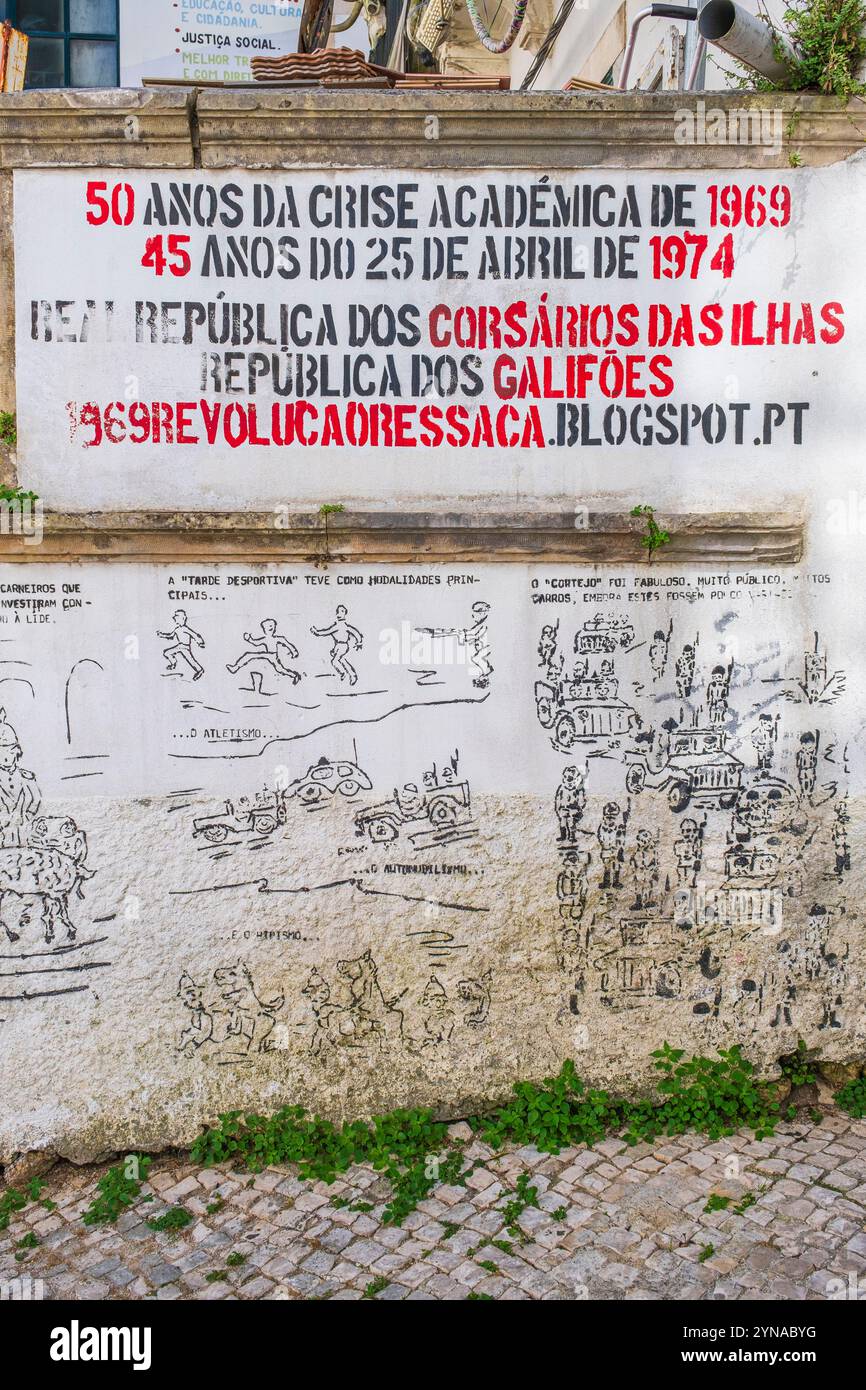 EDUCAÇÃO, CULTURA
E CIDADANIA.
• JUSTIÇA SOCIAL.
MELHOR
E COM
50 ANOS DA CRISE ACADÉMICA DE 1969
45 ANOS DO 25 DE ABRIL DE 1974
REAL REPÚBLICA DOS CORSÁRIOS DAS ILHAS
REPÚBLICA DOS GALIFÕES
1969REVOLUCAORESSACA.BLOGSPOT.PT
CARNEIROS QUE
NVESTIRAM CON-
À LIDE.
A "TARDE DESPORTIVA" TEVE COMO MODALIDADES PRIN-
CIPAIS...
...O ATLETISMO...
...O AUTOMOBILISMO...
...E O HIPISMO...
O "CORTEJO" FOI FABULOSO. MUITO PÚBLICO, MUITOS
CARROS, EMBORA ESTES FOSSEM POUCO
alamy
alamy
Image ID: 2YNABYG
www.alamy.com